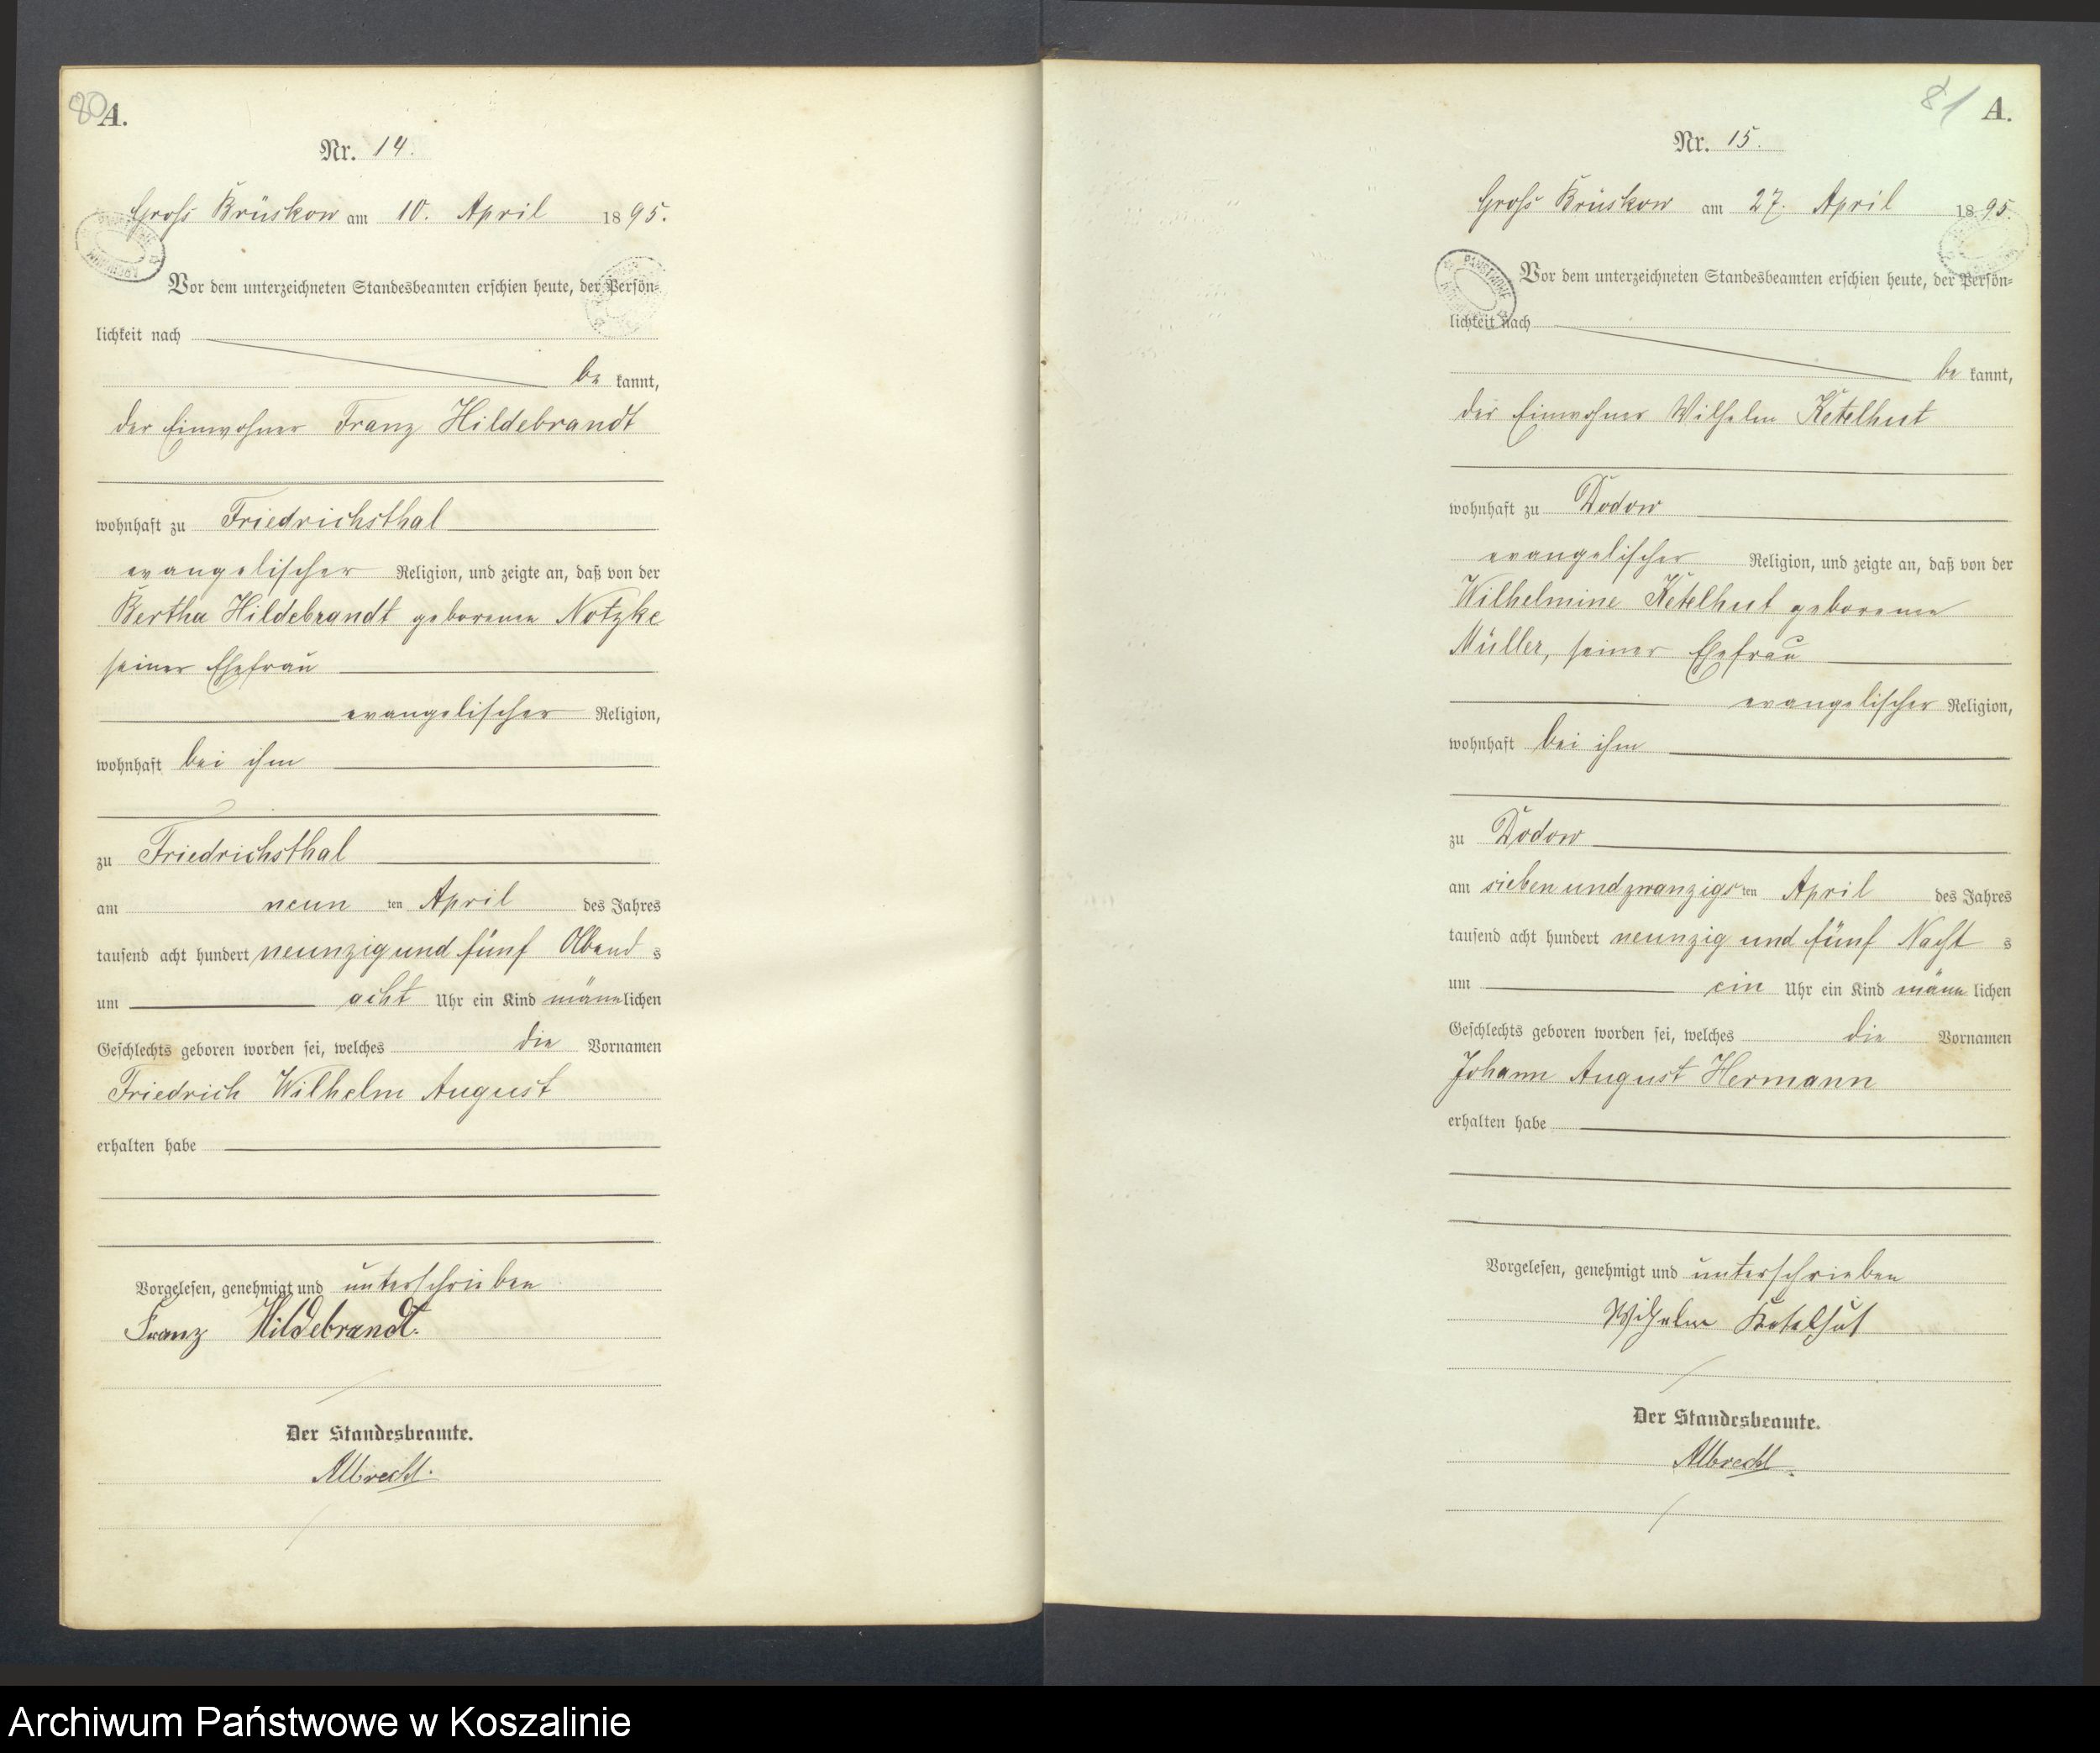 80 A.
Nr. 14.
Groß Brüskow am 10. April 1895.
Vor dem unterzeichneten Standesbeamten erschien heute, der Persön-
lichkeit nach
be kannt,
der Einwohner Franz Hildebrandt
wohnhaft zu Friedrichsthal
evangelischer Religion, und zeigte an, daß von der
Bertha Hildebrandt geborenen Notzke
seiner Ehefrau
evangelischer Religion,
wohnhaft bei ihm
zu Friedrichsthal
am neun ten April des Jahres
tausend acht hundert neunzig und fünf Abend s
um acht Uhr ein Kind männlichen
Geschlechts geboren worden sei, welches die Vornamen
Friedrich Wilhelm August
erhalten habe
Vorgelesen, genehmigt und unterschrieben
Franz Hildebrandt.
Der Standesbeamte.
Albrecht.
81 A.
Nr. 15.
Groß Brüskow am 27. April 1895.
Vor dem unterzeichneten Standesbeamten erschien heute, der Persön-
lichkeit nach
be kannt,
der Einwohner Wilhelm Ketelhut
wohnhaft zu Dodow
evangelischer Religion, und zeigte an, daß von der
Wilhelmine Ketelhut geborenen
Müller, seiner Ehefrau
evangelischer Religion,
wohnhaft bei ihm
zu Dodow
am sieben und zwanzigs ten April des Jahres
tausend acht hundert neunzig und fünf Nacht s
um ein Uhr ein Kind männ lichen
Geschlechts geboren worden sei, welches die Vornamen
Johann August Hermann
erhalten habe
Vorgelesen, genehmigt und unterschrieben
Wilhelm Ketelhut
Der Standesbeamte.
Albrecht.
Archiwum Państwowe w Koszalinie